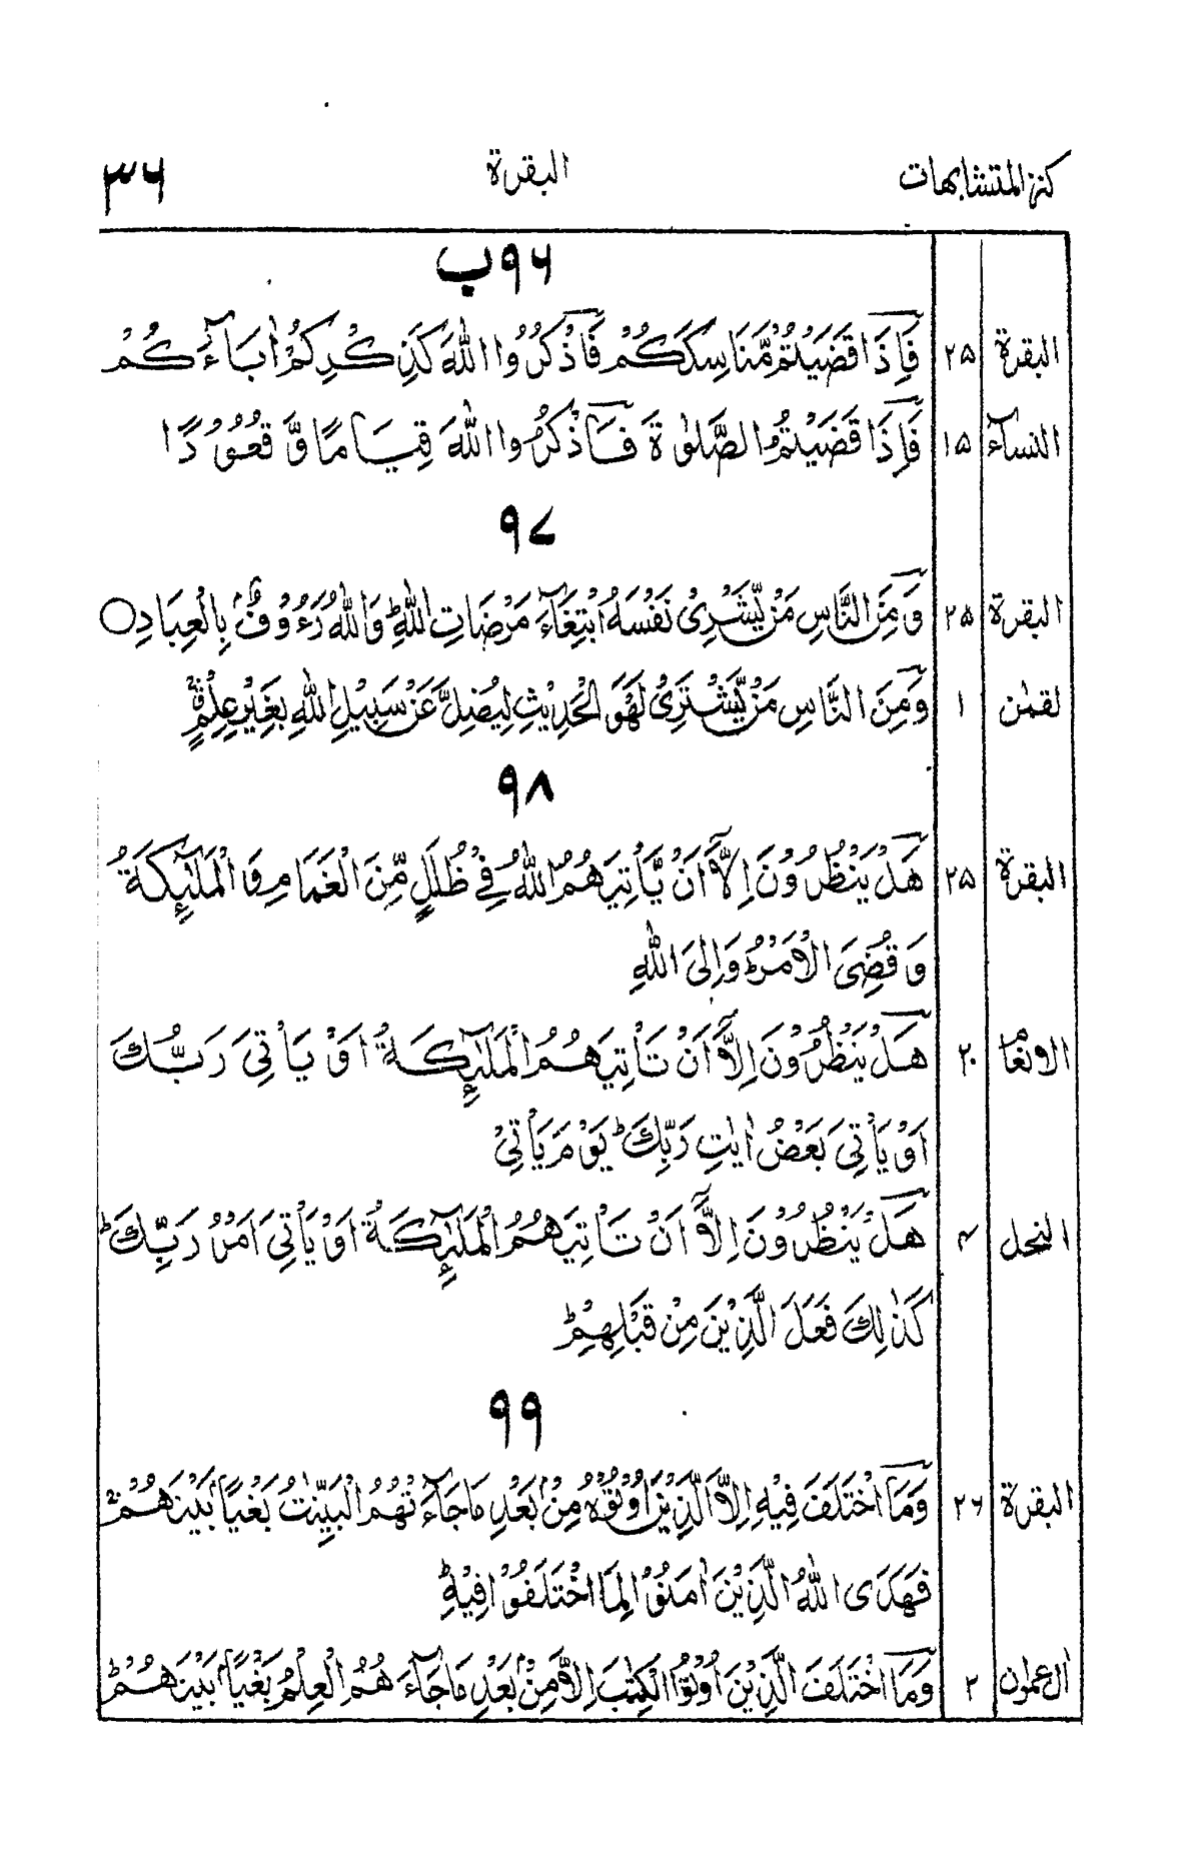 كنز المتشابهات البقرة ٣٦
٩٦ب
البقرة ٢٥ فَاِذَا قَضَيْتُمْ مَّنَاسِكَكُمْ فَاذْكُرُوا اللّٰهَ كَذِكْرِكُمْ اٰبَآءَكُمْ
النسآء ١٥ فَاِذَا قَضَيْتُمُ الصَّلٰوةَ فَاذْكُرُوا اللّٰهَ قِيَامًا وَّ قُعُوْدًا
٩٧
البقرة ٢٥ وَمِنَ النَّاسِ مَنْ يَّشْرِيْ نَفْسَهُ ابْتِغَآءَ مَرْضَاتِ اللّٰهِ ؕ وَاللّٰهُ رَءُوْفٌۢ بِالْعِبَادِ ○
لقمٰن ١ وَمِنَ النَّاسِ مَنْ يَّشْتَرِيْ لَهْوَ الْحَدِيْثِ لِيُضِلَّ عَنْ سَبِيْلِ اللّٰهِ بِغَيْرِ عِلْمٍ ۖ
٩٨
البقرة ٢٥ هَلْ يَنْظُرُوْنَ اِلَّآ اَنْ يَّاْتِيَهُمُ اللّٰهُ فِيْ ظُلَلٍ مِّنَ الْغَمَامِ وَ الْمَلٰٓئِكَةُ
وَ قُضِيَ الْاَمْرُ ؕ وَاِلَى اللّٰهِ
الانعا ٢٠ هَلْ يَنْظُرُوْنَ اِلَّآ اَنْ تَاْتِيَهُمُ الْمَلٰٓئِكَةُ اَوْ يَاْتِيَ رَبُّكَ
اَوْ يَاْتِيَ بَعْضُ اٰيٰتِ رَبِّكَ ؕ يَوْمَ يَاْتِيْ
النحل ٤ هَلْ يَنْظُرُوْنَ اِلَّآ اَنْ تَاْتِيَهُمُ الْمَلٰٓئِكَةُ اَوْ يَاْتِيَ اَمْرُ رَبِّكَ ؕ
كَذٰلِكَ فَعَلَ الَّذِيْنَ مِنْ قَبْلِهِمْ ؕ
٩٩
البقرة ٢٦ وَمَا اخْتَلَفَ فِيْهِ اِلَّا الَّذِيْنَ اُوْتُوْهُ مِنْۢ بَعْدِ مَا جَآءَتْهُمُ الْبَيِّنٰتُ بَغْيًاۢ بَيْنَهُمْ ۚ
فَهَدَى اللّٰهُ الَّذِيْنَ اٰمَنُوْا لِمَا اخْتَلَفُوْا فِيْهِ
اٰل عمرٰن ٢ وَمَا اخْتَلَفَ الَّذِيْنَ اُوْتُوا الْكِتٰبَ اِلَّا مِنْۢ بَعْدِ مَا جَآءَهُمُ الْعِلْمُ بَغْيًاۢ بَيْنَهُمْ ؕ